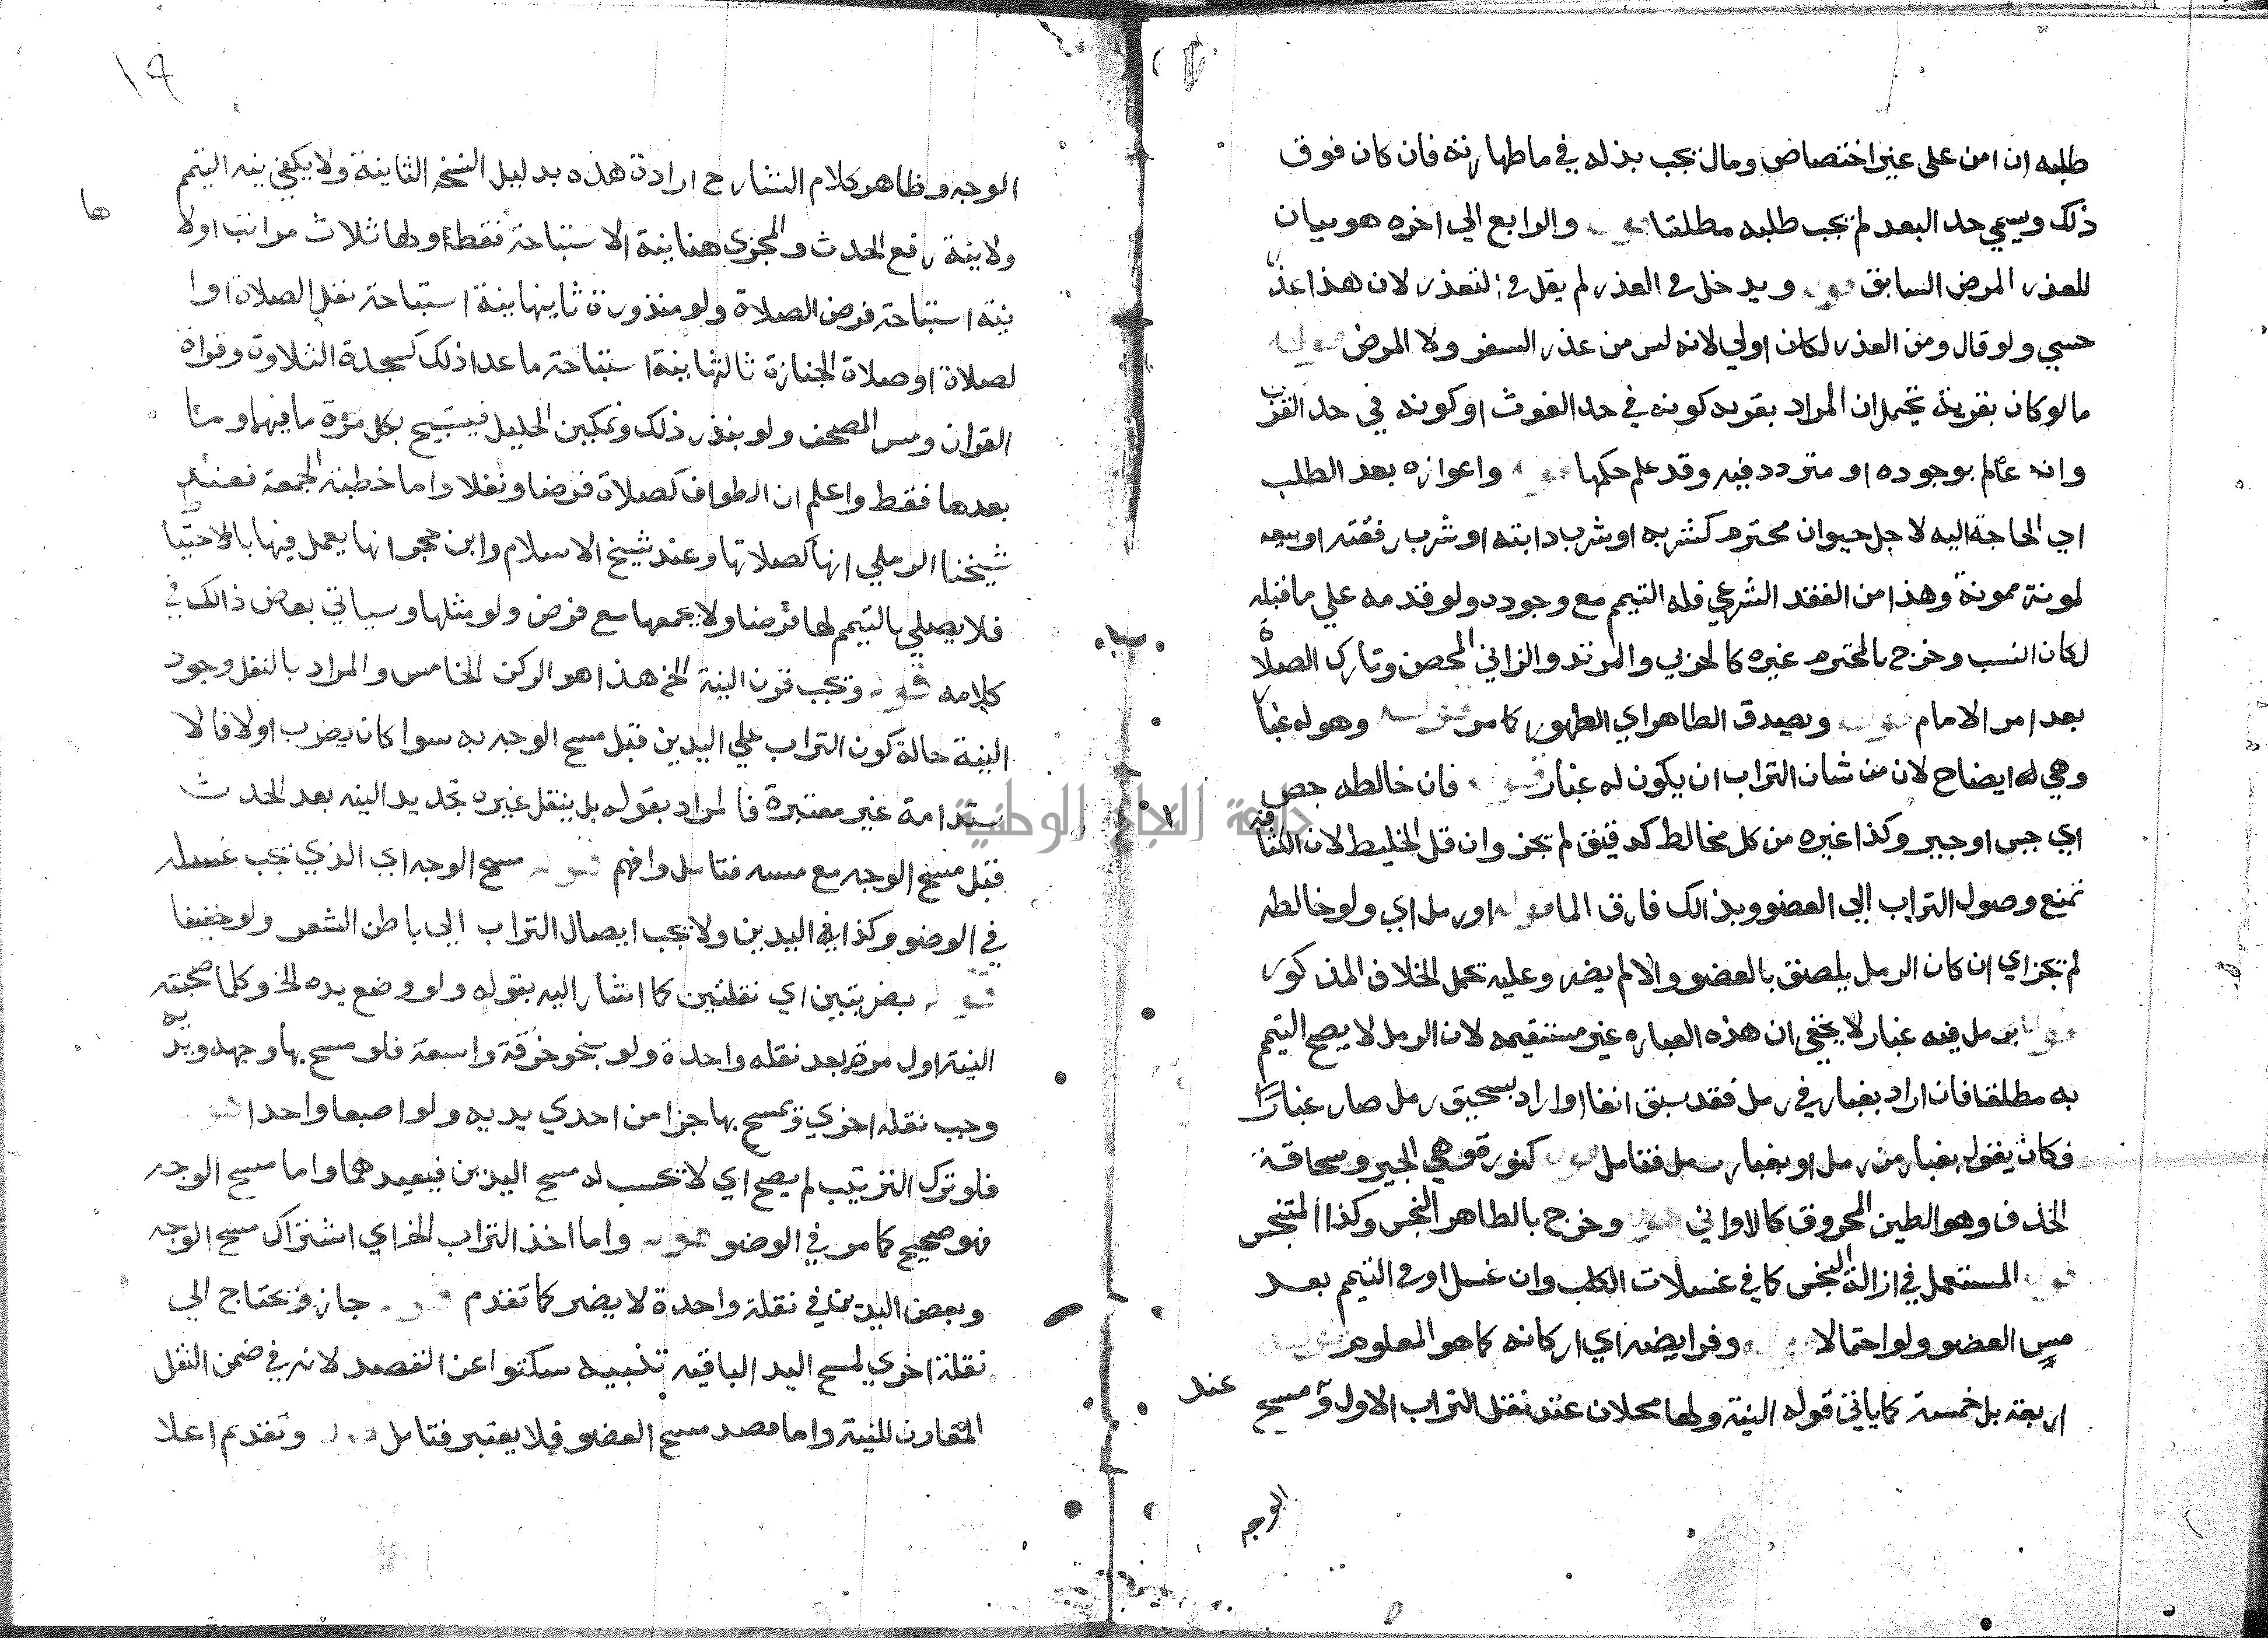 طلبه ان امن على غير اختصاص ومال يجب بذله في ماطهارته فان كان فوق
ذلك ويسمي حد البعد لم يجب طلبه مطلقا قوله والرابع الي اخره هو بيان
للعذر المرض السابق قوله ويدخل في العذر لم يقل في التعذر لان هذا عذر
حسي ولو قال ومن العذر لكان اولي لانه ليس من عذر السفر ولا المرض قوله
مالو كان بقربة يحتمل ان المراد بقربه كونه في حد الغوث او كونه في حد القرب
وانه عالم بوجوده او متردد فيه وقد علم حكمها قوله واعوازه بعد الطلب
اي الحاجة اليه لاجل حيوان محترم كشربه او شرب دابته او شرب رفقته او بيعه
لمونة ممونة وهذا من الفقد الشرعي فله التيمم مع وجوده ولو قدمه علي ماقبله
لكان انسب وخرج بالمحترم غيره كالحربي والمرتد والزاني المحصن وتارك الصلاة
بعد امر الامام قوله وبصدق الطاهر اي الطهور كامر قوله وهو له غبار
وهي له ايضاح لان من شان التراب ان يكون له غبار قوله فان خالطه جص
اي جبس او جير وكذا غيره من كل مخالط كدقيق لم يجز وان قل الخليط لان الكثافة
تمنع وصول التراب الي العضو وبذالك فارق الما قوله او رمل اي ولو خالطه
لم يجز اي ان كان الرمل يلصق بالعضو والا لم يضر وعليه يحمل الخلاف المذكور
قوله برمل فيه غبار لا يخفي ان هذه العباره غير مستقيمه لان الرمل لا يصح التيمم
به مطلقا فان اراد بغبار في رمل فقد سبق انفا او اراد بسحيق رمل صار غبارا
فكان يقول بغبار من رمل او بغبار رمل فتامل قوله كنورة وهي الجير وسحاقة
الخذف وهو الطين المحروق كالاواني قوله وخرج بالطاهر النجس وكذا المتنجس
قوله المستعمل في ازالة النجس كافي غسلات الكلب وان غسل او في التيمم بعد
مس العضو ولو احتمالا قوله وفرايضه اي اركانه كما هو المعلوم قوله
اربعة بل خمسة كما ياتي قوله النية ولها محلان عند نقل التراب الاول ومسح
عند
الوجه
١٩
الوجه وظاهر كلام الشارح ارادة هذه بدليل النسخه الثانية ولا يكفي نيه التيمم
ها
ولا نية رفع الحدث والمجزي هنا نية الاستباحة فقط ولها ثلاث مراتب اولا
نية استباحة فرض الصلاة ولو منذورة ثانيها نية استباحة نفل الصلاة او ا
لصلاة او صلاة الجنازة ثالثها نية استباحة ماعدا ذلك كسجدة التلاوة وقراة
القران ومس المصحف ولو بنذر ذلك وتمكين الحليل فيستبيح بكل مرة مافيها وما
بعدها فقط واعلم ان الطواف كصلاة فرضا ونفلا واما خطبة الجمعة فعند
شيخنا الرملي انها كصلاتها وعند شيخ الاسلام وابن حجر انها يعمل فيها بالاحتياط
فلا يصلي بالتيمم لها فرضا ولا يجمعها مع فرض ولو مثلها وسياتي بعض ذالك في
كلامه قوله وتجب قرن النية الخ هذا هو الركن الخامس والمراد بالنقل وجود
النية حالة كون التراب علي اليدين قبل مسح الوجه به سوا كان بضرب اولا فالا
ستدامة غير معتبرة فالمراد بقوله بل ينقل غيره تجديد النيه بعد الحدث
قبل مسح الوجه مع مسه فتامل وافهم قوله مسح الوجه اي الذي تجب غسله
في الوضو وكذا في اليدين ولا يجب ايصال التراب الي باطن الشعر ولو خفيفا
قوله بضربتين اي نقلتين كما اشار اليه بقوله ولو وضع يده الخ وكلما صحبته
النية اول مرة بعد نقله واحدة ولو بنحو خرقة واسعة فلو مسح بها وجهه ويديه
وجب نقله اخري ويمسح بها جزا من احدي يديه ولو اصبعا واحدا قوله
فلو ترك الترتيب لم يصح اي لا يحسب له مسح اليدين فيعيدهما واما مسح الوجه
فهو صحيح كامر في الوضو قوله واما اخذ التراب الخ اي اشتراك مسح الوجه
وبعض اليدين في نقلة واحدة لا يضر كما تقدم قوله جاز ويحتاج الي
نقلة اخري لمسح اليد الباقيه تنبيه سكتوا عن القصد لانه في ضمن النقل
المقارن للنية واما قصد مسح العضو فلا يعتبر فتامل قوله وتقديم اعلا
جامعة النجاح الوطنية